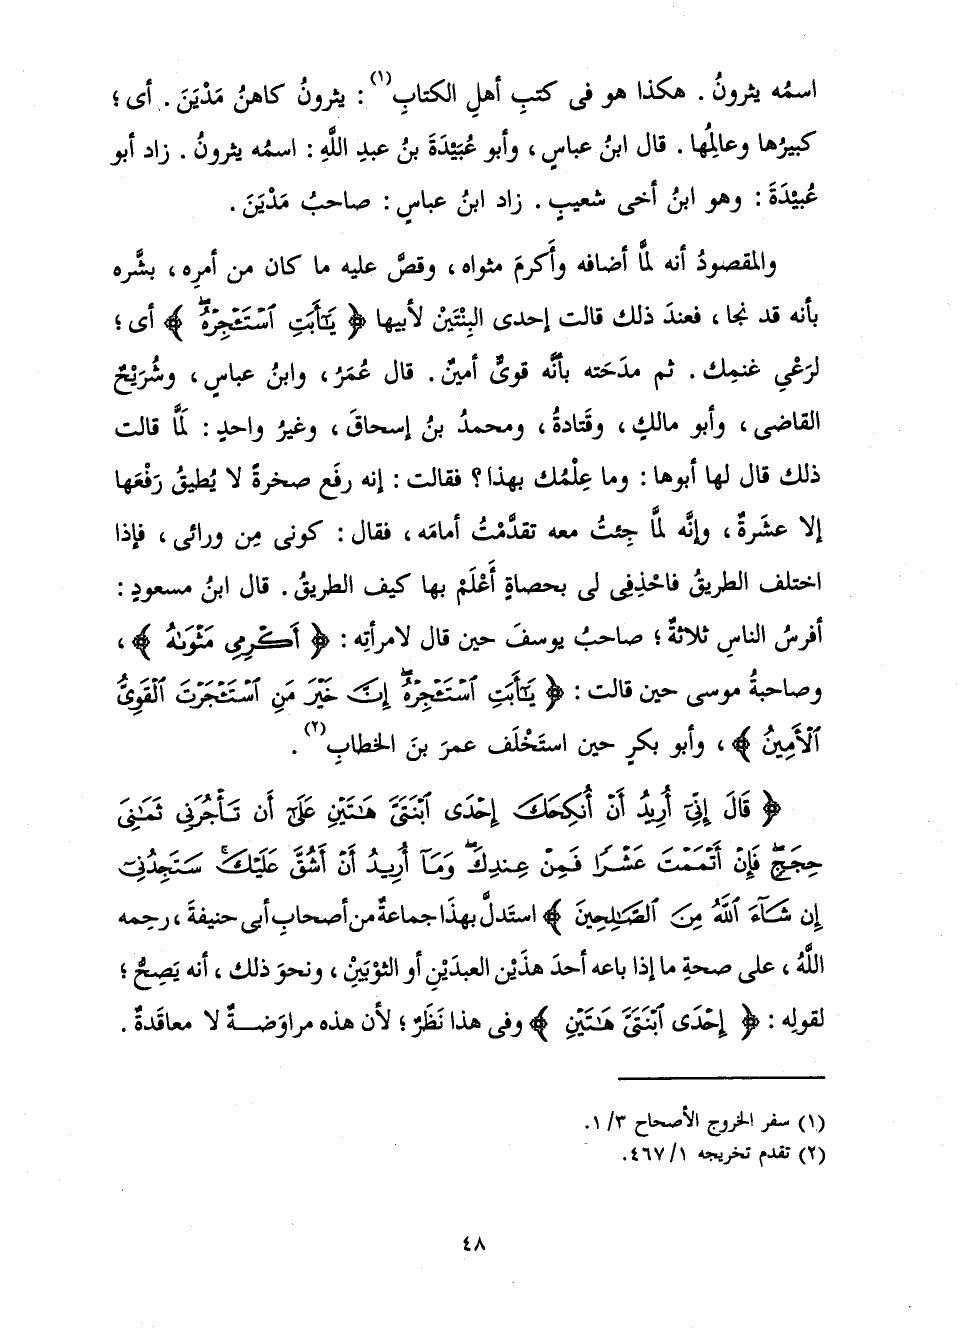 اسمُه يثرونُ . هكذا هو فى كتبِ أهلِ الكتابِ(١) : يثرونُ كاهنُ مَدْيَنَ . أى ؛
كبيرُها وعالِمُها . قال ابنُ عباسٍ ، وأبو عُبَيْدَةَ بنُ عبدِ اللَّهِ : اسمُه يثرونُ . زاد أبو
عُبيْدَةَ : وهو ابنُ أخى شعيبٍ . زاد ابنُ عباسٍ : صاحبُ مَدْيَنَ .
والمقصودُ أنه لمَّا أضافه وأَكرمَ مثواه ، وقصَّ عليه ما كان من أمرِه ، بشَّره
بأنه قد نجا ، فعندَ ذلك قالت إحدى البِنْتَيْنْ لأبيها ﴿ يَٰٓأَبَتِ ٱسْتَـْٔجِرْهُۖ ﴾ أى ؛
لرَعْىِ غنمِك . ثم مدَحَته بأنَّه قوىٌّ أمينٌ . قال عُمَرُ ، وابنُ عباسٍ ، وشُرَيْحٌ
القاضى ، وأبو مالكٍ ، وقَتادةُ ، ومحمدُ بنُ إسحاقَ ، وغيرُ واحدٍ : لَمَّا قالت
ذلك قال لها أبوها : وما عِلْمُك بهذا ؟ فقالت : إنه رفَع صخرةً لا يُطيقُ رَفْعَها
إلا عشَرةٌ ، وإنَّه لمَّا جِئتُ معه تقدَّمْتُ أمامَه ، فقال : كونى مِن ورائى ، فإذا
اختلف الطريقُ فاحْذِفِى لى بحصاةٍ أَعْلَمْ بها كيف الطريقُ . قال ابنُ مسعودٍ :
أفرسُ الناسِ ثلاثةٌ ؛ صاحبُ يوسفَ حين قال لامرأتِه : ﴿ أَكْرِمِى مَثْوَىٰهُ ﴾ ،
وصاحبةُ موسى حين قالت : ﴿ يَٰٓأَبَتِ ٱسْتَـْٔجِرْهُۖ إِنَّ خَيْرَ مَنِ ٱسْتَـْٔجَرْتَ ٱلْقَوِىُّ
ٱلْأَمِينُ ﴾ ، وأبو بكرٍ حين استَخْلَف عمرَ بنَ الخطابِ(٢) .
﴿ قَالَ إِنِّىٓ أُرِيدُ أَنْ أُنكِحَكَ إِحْدَى ٱبْنَتَىَّ هَٰتَيْنِ عَلَىٰٓ أَن تَأْجُرَنِى ثَمَٰنِىَ
حِجَجٍۖ فَإِنْ أَتْمَمْتَ عَشْرًا فَمِنْ عِندِكَۖ وَمَآ أُرِيدُ أَنْ أَشُقَّ عَلَيْكَۚ سَتَجِدُنِىٓ
إِن شَآءَ ٱللَّهُ مِنَ ٱلصَّٰلِحِينَ ﴾ استَدلَّ بهذَا جماعةٌ من أصحابِ أبى حنيفةَ ، رحِمه
اللَّهُ ، على صحةِ ما إذا باعه أحدَ هذَيْن العبدَيْنِ أو الثوْبَيْنِ ، ونحوَ ذلك ، أنه يَصِحُّ ؛
لقولِه : ﴿ إِحْدَى ٱبْنَتَىَّ هَٰتَيْنِ ﴾ وفى هذا نَظَرٌ ؛ لأن هذه مراوَضةٌ لا معاقَدةٌ .
(١) سفر الخروج الأصحاح ٣/ ١.
(٢) تقدم تخريجه ١/ ٤٦٧.
٤٨